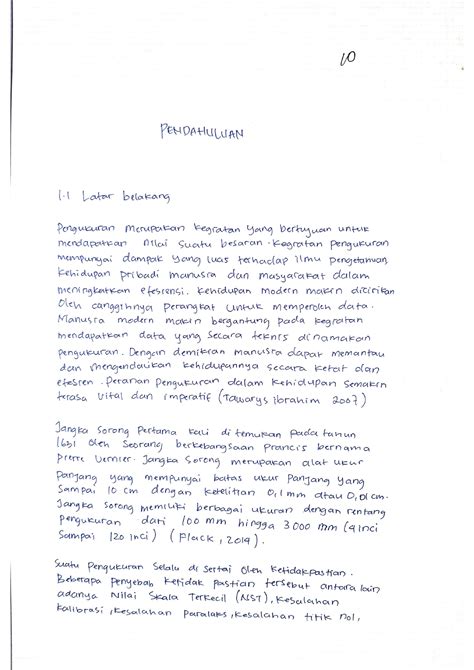 10
PENDAHULUAN
1.1 Latar belakang
Pengukuran merupakan kegiatan yang bertujuan untuk
mendapatkan nilai suatu besaran. kegiatan pengukuran
mempunyai dampak yang luas terhadap ilmu pengetahuan,
kehidupan pribadi manusia dan masyarakat dalam
meningkatkan efesiensi. kehidupan modern makin dicirikan
oleh canggihnya perangkat untuk memperoleh data.
Manusia modern makin bergantung pada kegiatan
mendapatkan data yang secara teknis dinamakan
pengukuran. Dengan demikian manusia dapat memantau
dan mengendalikan kehidupannya secara ketat dan
efesien. Peranan Pengukuran dalam kehidupan semakin
terasa vital dan imperatif (Tawarys ibrahim 2007)
Jangka sorong Pertama kali di temukan pada tahun
1631 oleh Seorang berkebangsaan prancis bernama
pierre vernier. Jangka Sorong merupakan alat ukur
Panjang yang mempunyai batas ukur Panjang yang
Sampai 10 cm dengan ketelitian 0,1 mm atau 0,01 cm.
Jangka sorong memiliki berbagai ukuran dengan rentang
pengukuran dari 100 mm hingga 3000 mm (4 inci
Sampai 120 inci) (Flack, 2014).
Suatu Pengukuran Selalu di sertai oleh ketidakpastian.
Beberapa penyebab ketidak pastian tersebut antara lain
adanya Nilai Skala Terkecil (NST), kesalahan
kalibrasi, kesalahan paralaks, kesalahan titik nol,